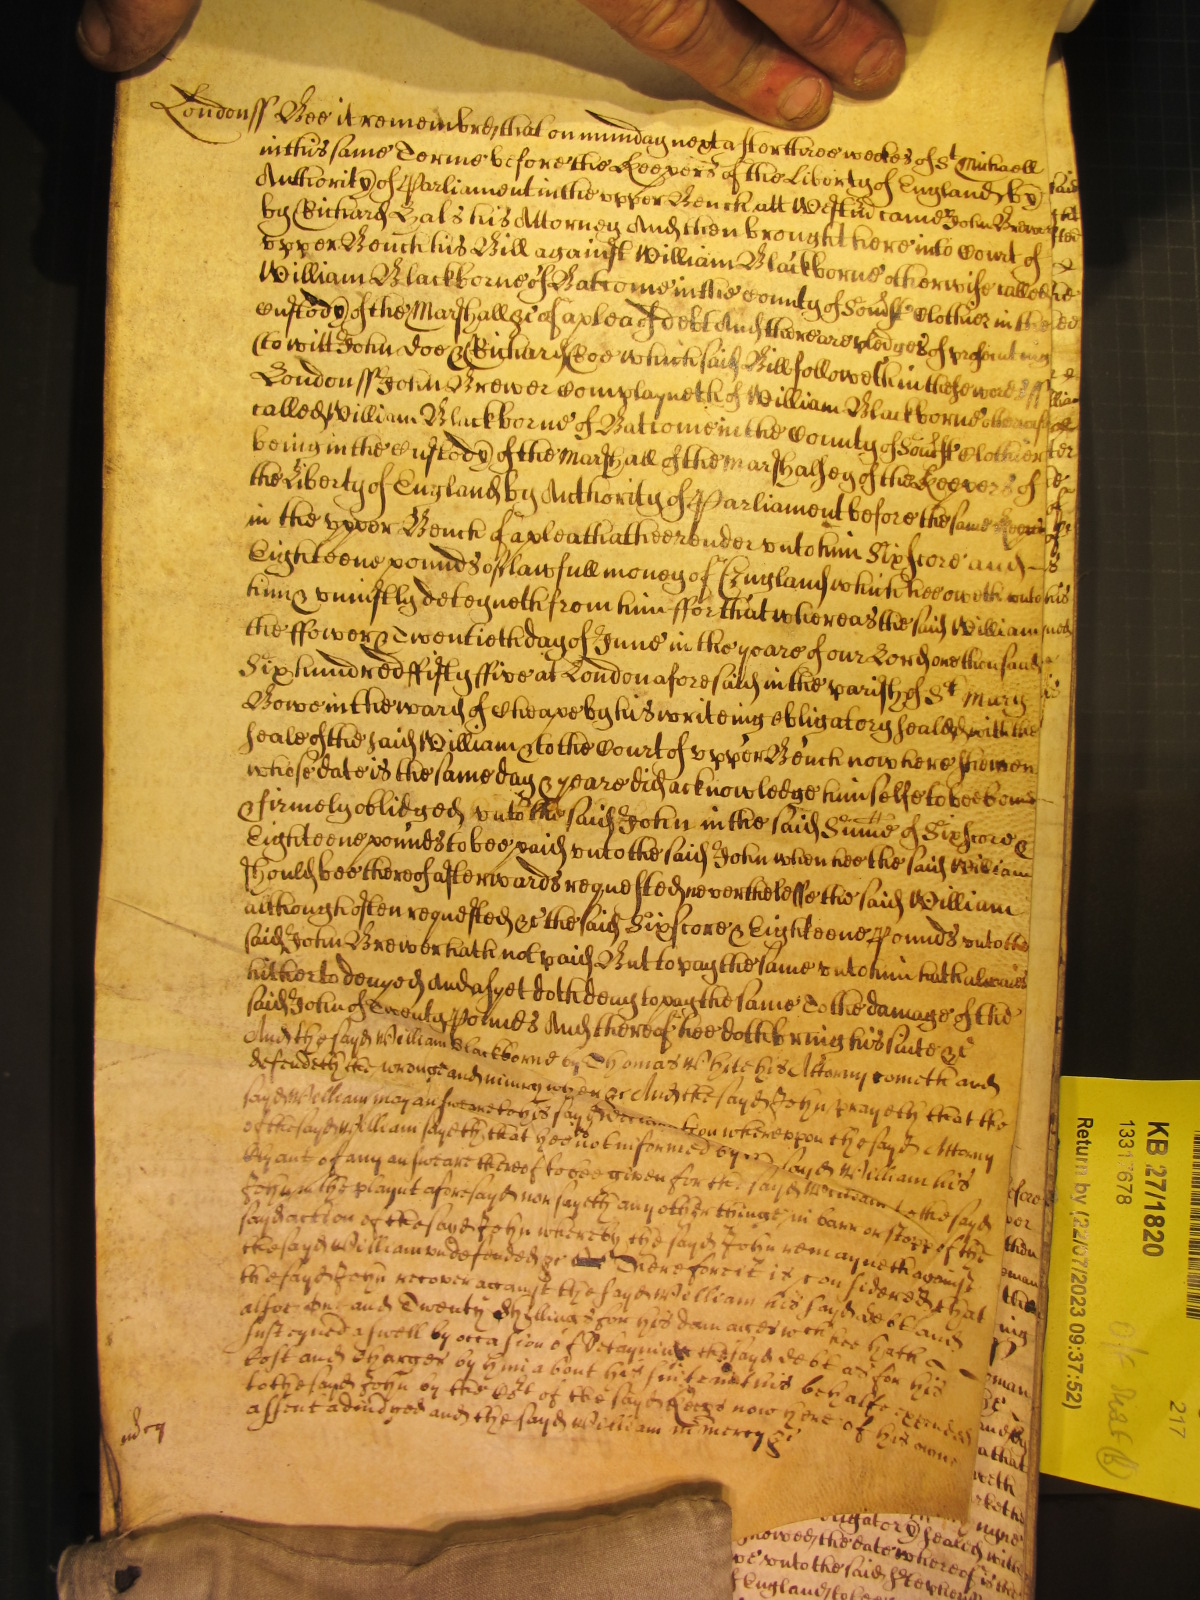 Londonss Bee it remembred that on munday next after three weekes of St Michaell
in this same Terme before the Keepers of the Liberty of England by
Authority of Parliament in the upper Bench att Westm came John Brewer
by Richard Hals his Attorney And then brought here into Court of
upper Bench his Bill against William Blackborne otherwise called
William Blackborne of Batcome in the County of Somst Clothier in the
Custody of the Marshall &c of a plea of debt And there are pledges of prosecuting
(to witt John Doe & Richard Roe which said Bill followeth in these words ss
Londonss John Brewer Complayneth of William Blackborne otherwise
called William Blackborne of Batcome in the County of Somst Clothier
being in the Custody of the Marshall of the Marshalsey of the Keepers of
the Liberty of England by Authority of Parliament before the same Keepers
in the upper Bench of a plea that hee render unto him Six score and
Eighteene pounds of lawfull money of England which hee oweth unto
him & uniustly deteyneth from him ffor that whereas the said William
the ffower & Twentieth day of June in the yeare of our Lord one thousand
Six hundred ffifty ffive at London aforesaid in the parish of St Mary
Bowe in the ward of Cheape by his writeing obligatory sealed with the
seale of the said William & to the Court of upper Bench now here shewen
whose date is the same day & yeare did acknowledge himselfe to bee bound
& firmely obliged unto the said John in the said Summe of Six score &
Eighteene pounds to bee paid unto the said John when hee the said William
should bee thereof afterwards requested neverthelesse the said William
although often requested &c the said Six score & Eighteene Pounds unto the
said John Brewer hath not paid But to pay the same unto him hath alwaies
hitherto denyed And as yet doth deny to pay the same To the damage of the
said John of Twenty Pounds And thereof hee doth bring his suite &c
And the sayd William Blackborne by Thomas White his Attorny cometh and
defendeth the wronge and iniury when &c And the sayd John prayeth that the
sayd William may answeare to his sayd Declaration whereuppon the sayd Attorny
of the sayd William sayeth that hee is not informed by the sayd William his
Clyant of any answeare thereof to bee given for the sayd William to the sayd
John in the playnt aforesayd nor sayeth any other thinge in barr or stopp of the
sayd action of the sayd John whereby the sayd John remayneth against
the sayd William undefended &c Therefore it is considered that
the sayd John recover against the sayd William his sayd debt and
alsoe One and Twenty shyllings for his damages wch hee hath
susteyned aswell by occasion of Detayning the sayd debt as for his
Cost and Charges by him about his suite in this behalfe expended
to the sayd John by the Cort of the sayd Keeps now here of his owne
assent adiudged and the sayd William in mercy &c
mercy
KB 27/1820
13317678
Return by (22/07/2023 09:37:52)
217